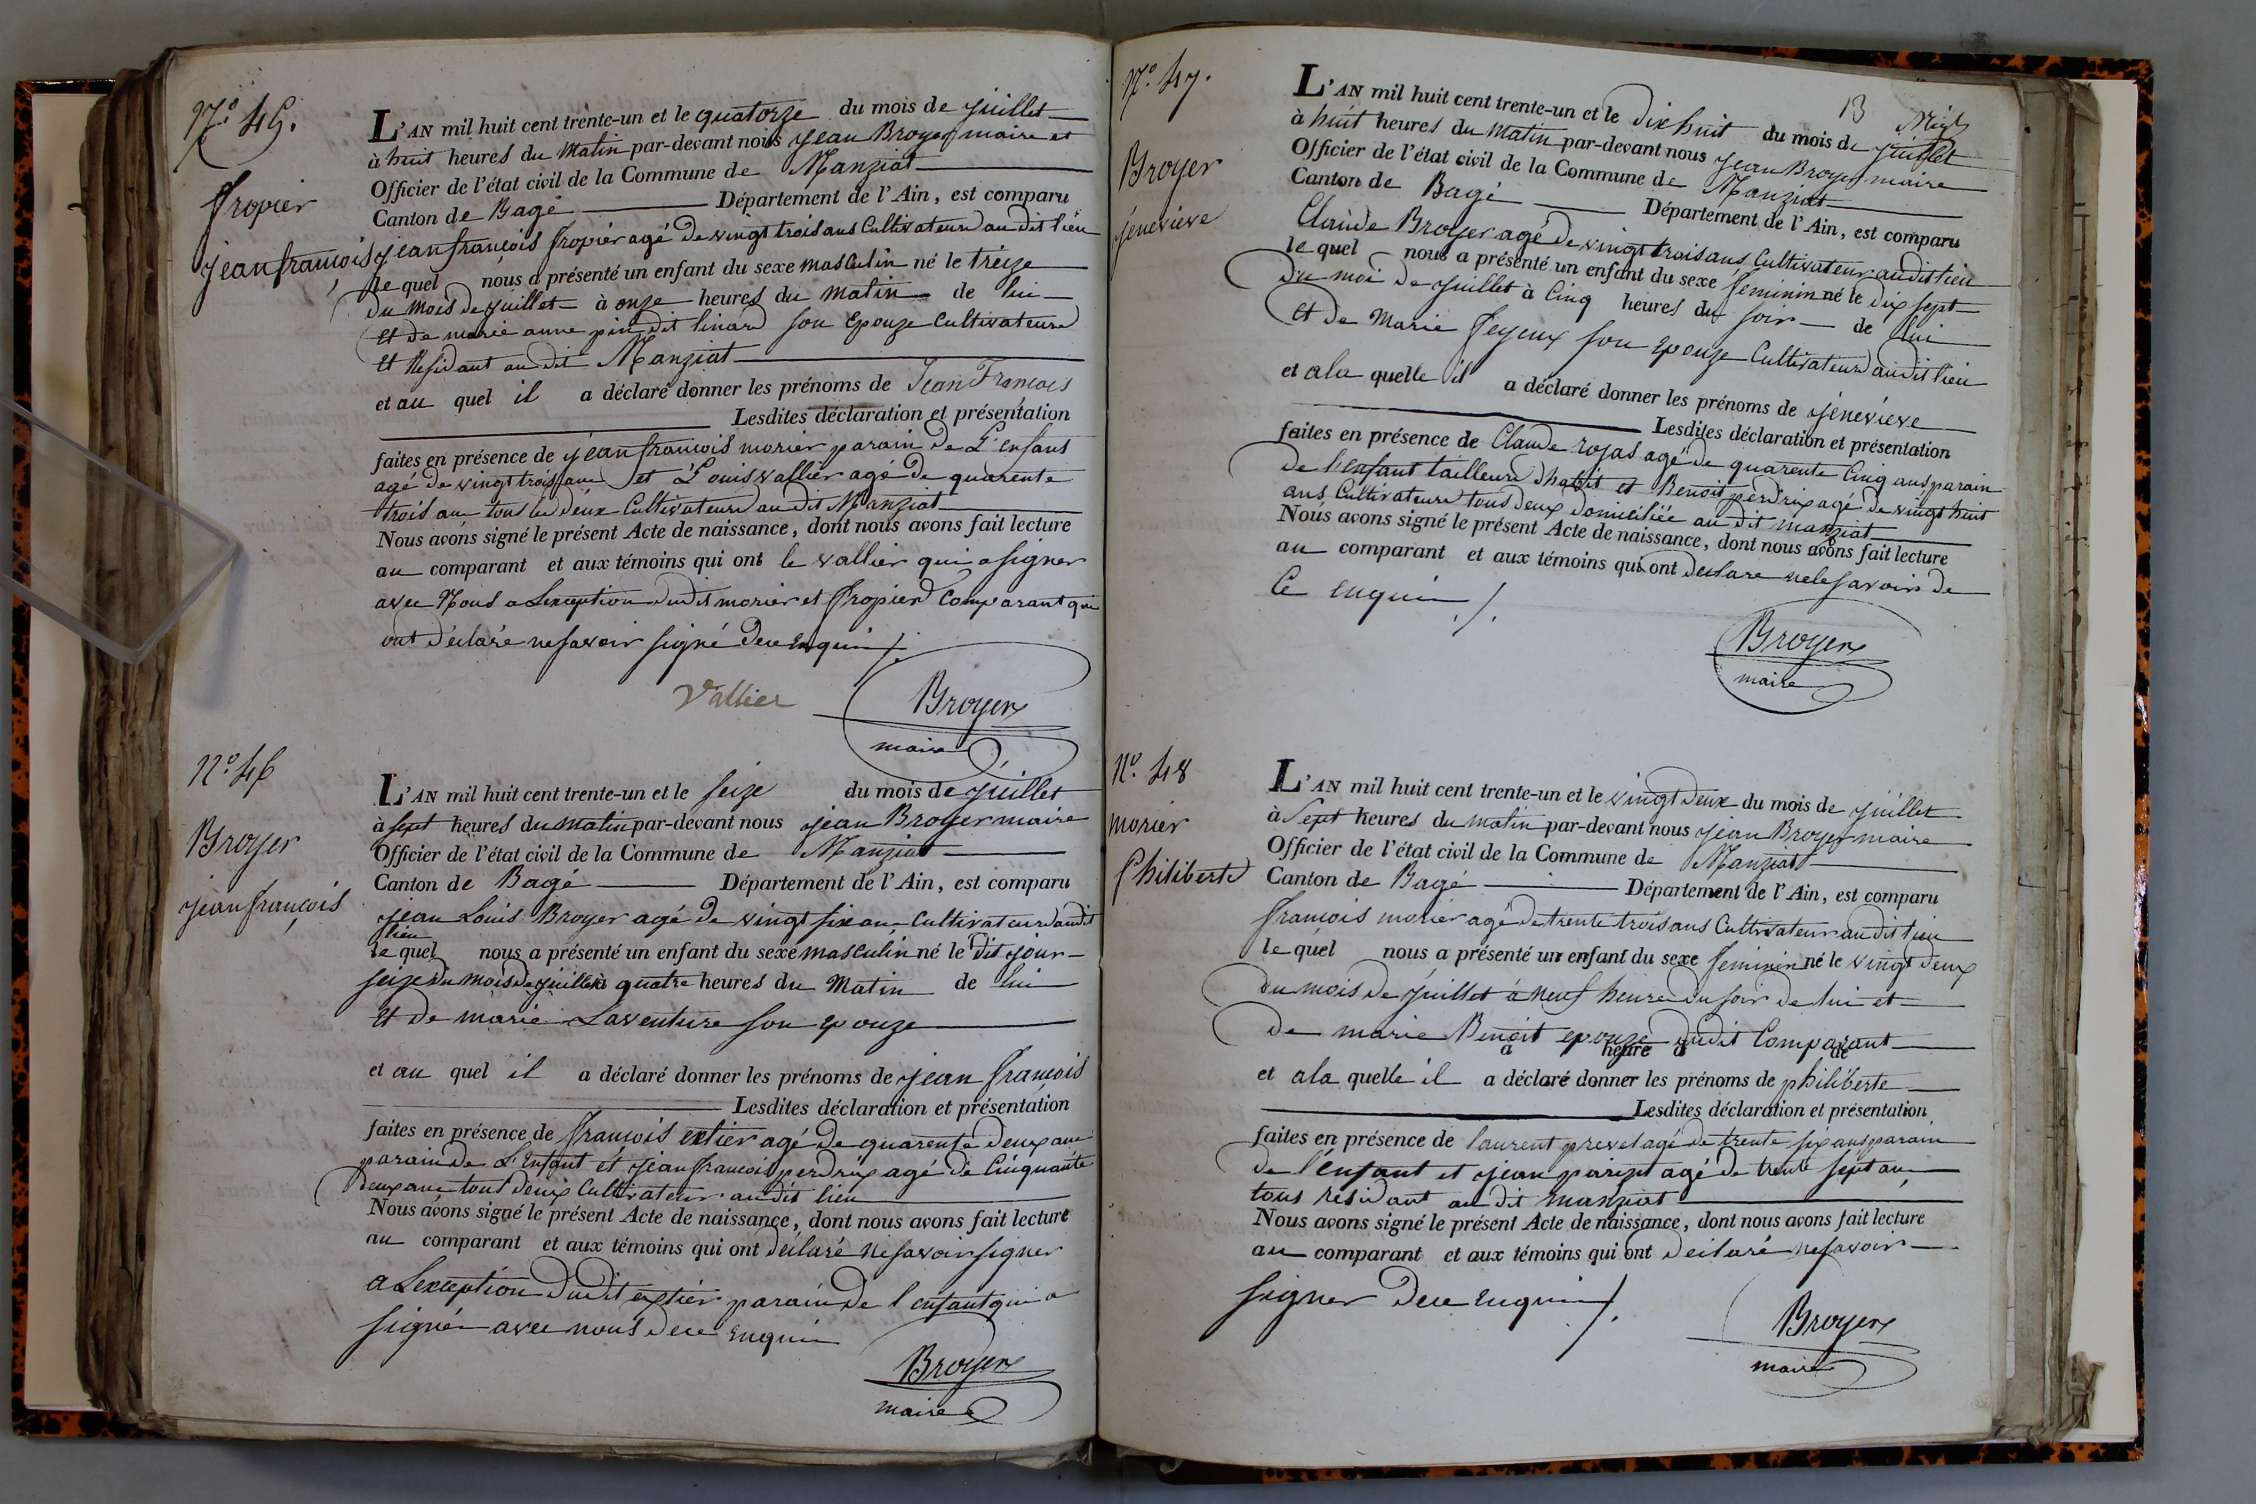 N.° 45.
Fropier
Jean françois
L'AN mil huit cent trente-un et le quatorze du mois de juillet
à huit heures du matin par-devant nous jean Broyer maire et
Officier de l'état civil de la Commune de Manziat
Canton de Bagé Département de l'Ain, est comparu
jean françois fropier agé de vingt trois ans Cultivateur au dit lieu
le quel nous a présenté un enfant du sexe masculin né le treize
du mois de juillet à onze heures du matin de lui
et de marie anne pin dit linard son epouze Cultivateurs
et Residant au dit Manziat
et au quel il a déclaré donner les prénoms de Jean François
Lesdites déclaration et présentation
faites en présence de jean francois morier parain de L'enfans
agé de vingt trois ans et Louis vallier agé de quarente
trois ans tous les deux Cultivateurs au dit Manziat
Nous avons signé le présent Acte de naissance, dont nous avons fait lecture
au comparant et aux témoins qui ont le vallier qui a signer
avec Nous a Lexception dudit morier et fropier Comparant qui
ont déclaré ne savoir signé de ce enquis /.
Vallier Broyer
maire
N.° 46
Broyer
jean françois
L'AN mil huit cent trente-un et le seize du mois de juillet
à sept heures du matin par-devant nous jean Broyer maire
Officier de l'état civil de la Commune de Manziat
Canton de Bagé Département de l'Ain, est comparu
jean Louis Broyer agé de vingt six ans Cultivateur audit
lieu
le quel nous a présenté un enfant du sexe masculin né le dit jour
seize du mois de juillet à quatre heures du matin de lui
et de marie Laventure son epouze
et au quel il a déclaré donner les prénoms de jean françois
Lesdites déclaration et présentation
faites en présence de françois extier agé de quarente deux ans
parain de L'enfant et jean françois perdrix agé de Cinquante
deux ans tout deux Cultivateur audit lieu
Nous avons signé le présent Acte de naissance, dont nous avons fait lecture
au comparant et aux témoins qui ont déclaré ne savoir signer
a Lexception dudit extier parain de l enfant qui a
signér avec nous de ce enquis
Broyer
maire
13
N.° 47.
Broyer
jenevieve
L'AN mil huit cent trente-un et le dix huit du mois de juillet
à huit heures du matin par-devant nous jean Broyer maire
Officier de l'état civil de la Commune de Manziat
Canton de Bagé Département de l'Ain, est comparu
Claude Broyer agé de vingt trois ans Cultivateur audit lieu
le quel nous a présenté un enfant du sexe feminin né le dix sept
du moi de juillet à Cinq heures du soir de lui
et de marie feyeux son epouze Cultivateurs audit lieu
et a la quelle il a déclaré donner les prénoms de jénevieve
Lesdites déclaration et présentation
faites en présence de Claude rojas agé de quarente Cinq ans parain
de l'enfant tailleur d'habit et Benoit perdrix agé de vingt huit
ans Cultivateurs tous deux domiciliée au dit manziat
Nous avons signé le présent Acte de naissance, dont nous avons fait lecture
au comparant et aux témoins qui ont declare ne le savoir de
Ce enquis /.
Broyer
maire
N.° 48
morier
Philiberte
L'AN mil huit cent trente-un et le vingt deux du mois de juillet
à Sept heures du matin par-devant nous jean Broyer maire
Officier de l'état civil de la Commune de Manziat
Canton de Bagé Département de l'Ain, est comparu
francois morier agé de trente trois ans Cultivateur au dit lieu
le quel nous a présenté un enfant du sexe feminin né le vingt deux
du mois de juillet à neuf heure du soir de lui et
de marie Benoit epouze dudit Comparant
a heure d de
et a la quelle il a déclaré donner les prénoms de philiberte
Lesdites déclaration et présentation
faites en présence de laurent prevel agé de trente six ans parain
de l'enfant et jean parizet agé de trente sept ans
tous résidant au dit manziat
Nous avons signé le présent Acte de naissance, dont nous avons fait lecture
au comparant et aux témoins qui ont declaré ne savoir
signer de ce enquis /.
Broyer
maire